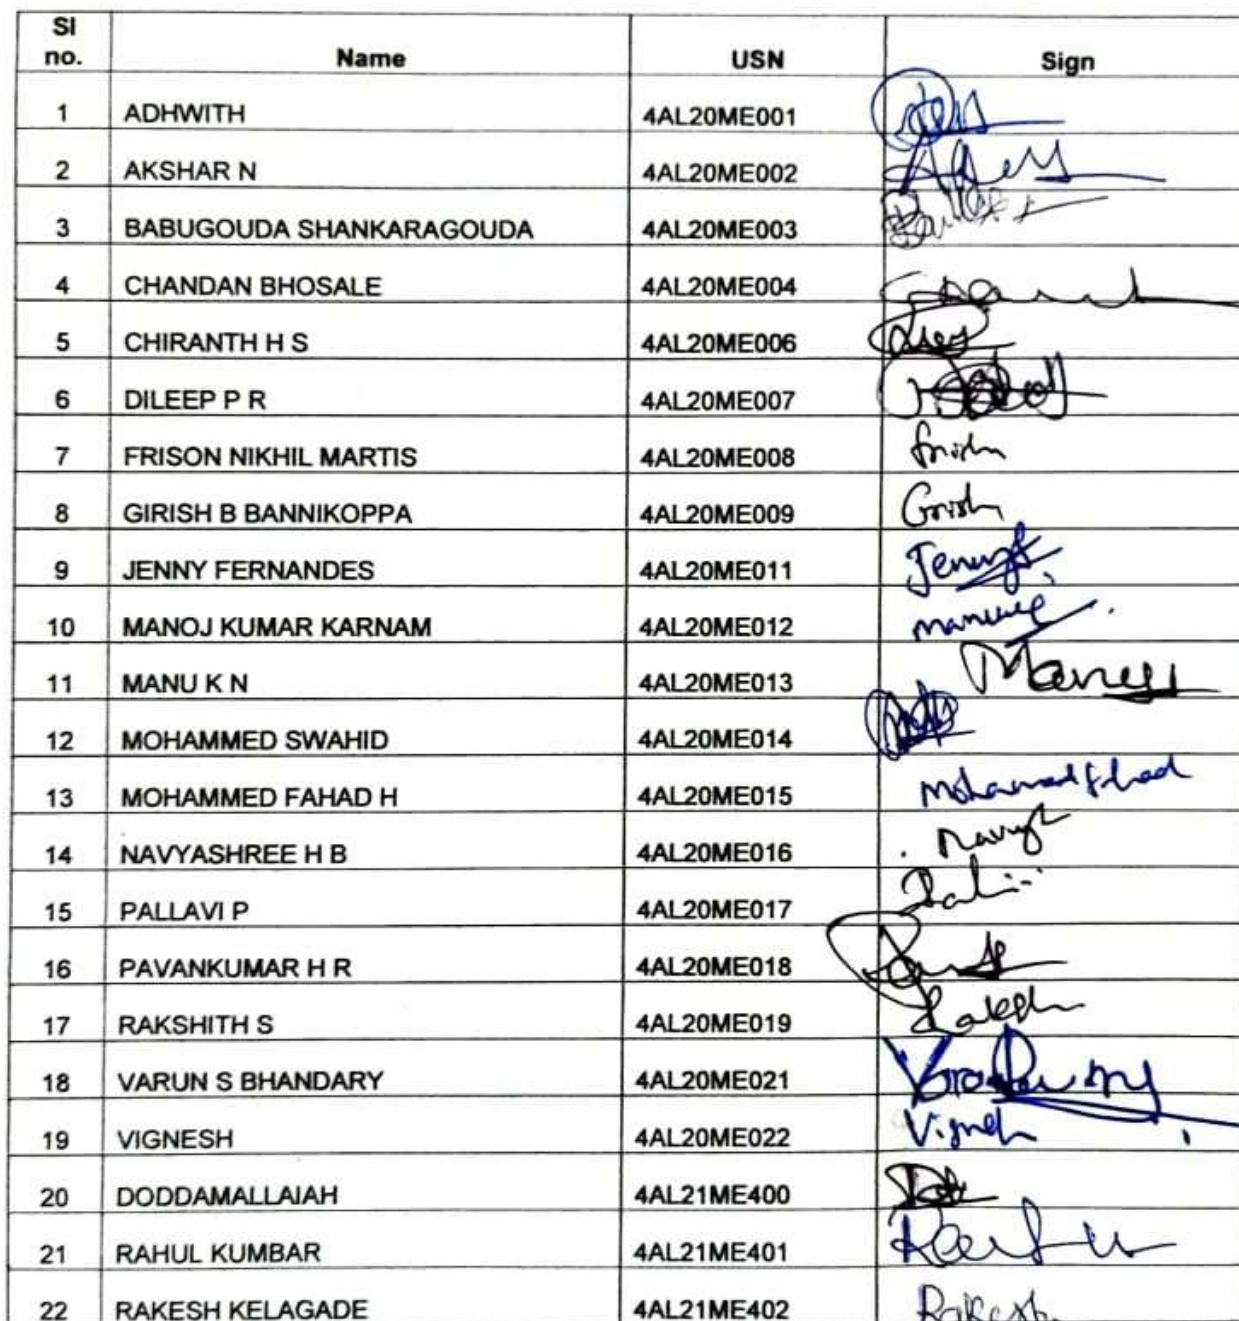 Sl no. Name USN Sign
1 ADHWITH 4AL20ME001
2 AKSHAR N 4AL20ME002
3 BABUGOUDA SHANKARAGOUDA 4AL20ME003
4 CHANDAN BHOSALE 4AL20ME004
5 CHIRANTH H S 4AL20ME006
6 DILEEP P R 4AL20ME007
7 FRISON NIKHIL MARTIS 4AL20ME008
8 GIRISH B BANNIKOPPA 4AL20ME009 Girish
9 JENNY FERNANDES 4AL20ME011
10 MANOJ KUMAR KARNAM 4AL20ME012
11 MANU K N 4AL20ME013
12 MOHAMMED SWAHID 4AL20ME014
13 MOHAMMED FAHAD H 4AL20ME015
14 NAVYASHREE H B 4AL20ME016
15 PALLAVI P 4AL20ME017
16 PAVANKUMAR H R 4AL20ME018
17 RAKSHITH S 4AL20ME019
18 VARUN S BHANDARY 4AL20ME021
19 VIGNESH 4AL20ME022
20 DODDAMALLAIAH 4AL21ME400
21 RAHUL KUMBAR 4AL21ME401
22 RAKESH KELAGADE 4AL21ME402 Rakesh